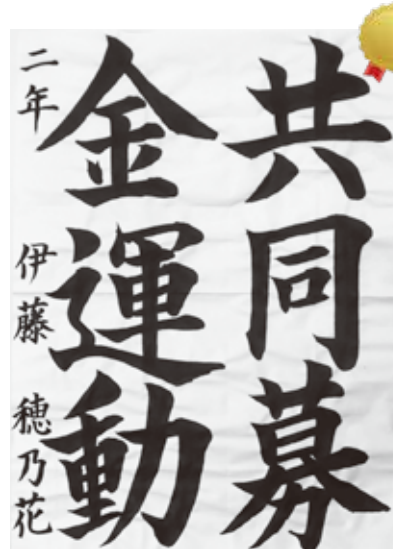 共同募
金運動
二年 伊藤 穂乃花